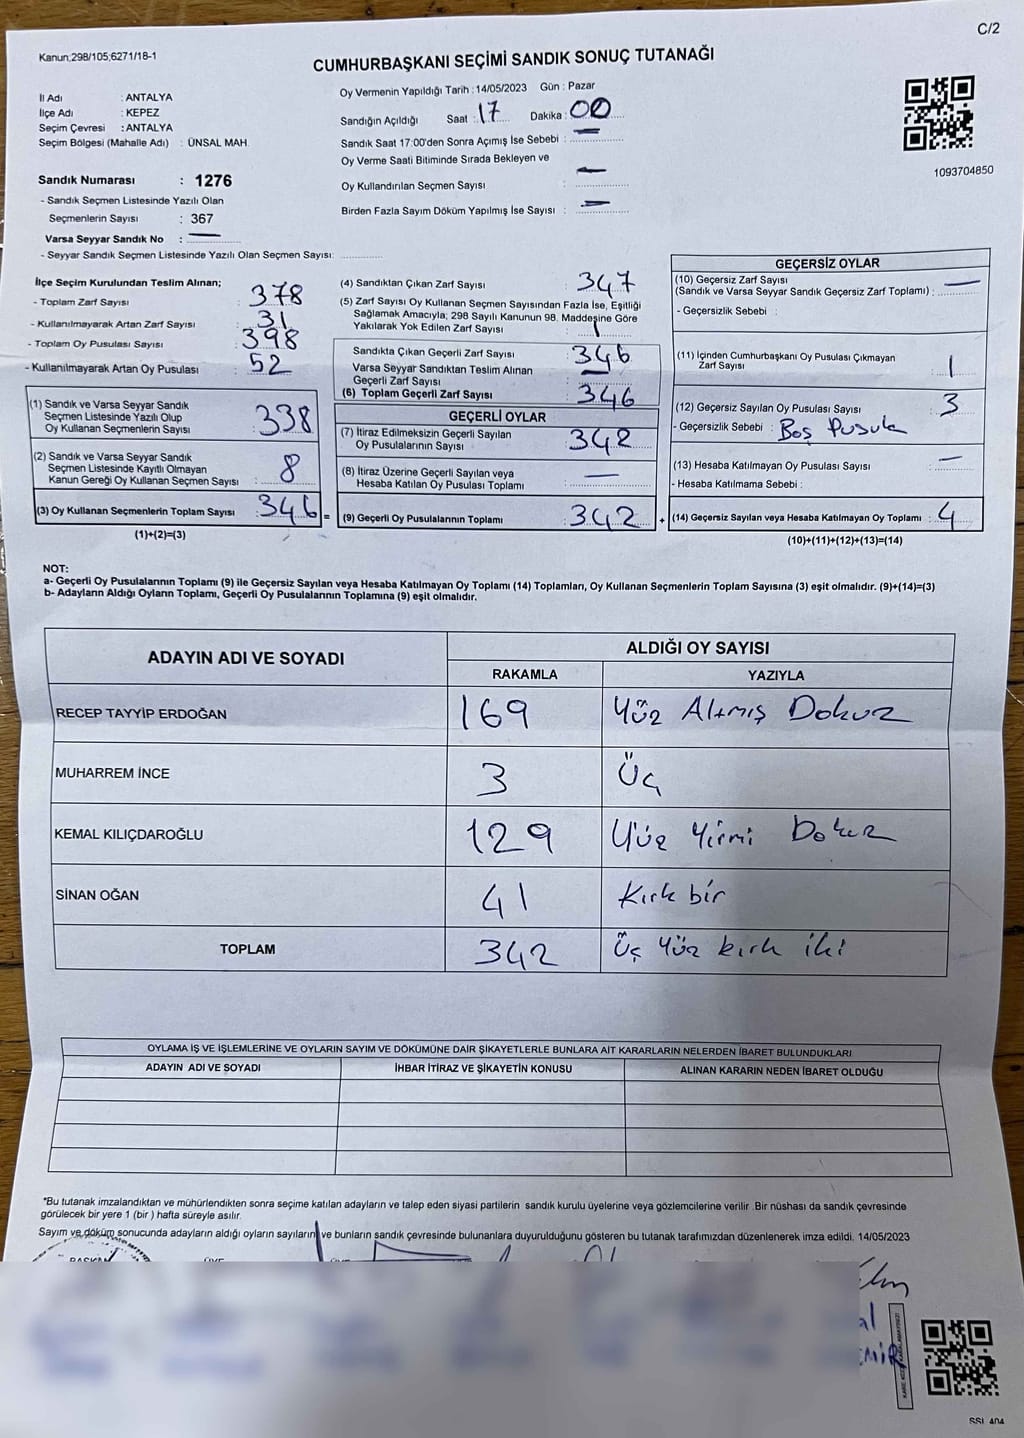 C/2
Kanun;298/105;6271/18-1
CUMHURBAŞKANI SEÇİMİ SANDIK SONUÇ TUTANAĞI
İl Adı : ANTALYA
İlçe Adı : KEPEZ
Seçim Çevresi : ANTALYA
Seçim Bölgesi (Mahalle Adı) : ÜNSAL MAH.
Sandık Numarası : 1276
- Sandık Seçmen Listesinde Yazılı Olan
Seçmenlerin Sayısı : 367
Varsa Seyyar Sandık No : —
- Seyyar Sandık Seçmen Listesinde Yazılı Olan Seçmen Sayısı: ............
Oy Vermenin Yapıldığı Tarih : 14/05/2023 Gün : Pazar
Sandığın Açıldığı Saat : 17 Dakika : 00
Sandık Saat 17:00'den Sonra Açımış İse Sebebi : —
Oy Verme Saati Bitiminde Sırada Bekleyen ve
Oy Kullandırılan Seçmen Sayısı : —
Birden Fazla Sayım Döküm Yapılmış İse Sayısı : —
1093704850
İlçe Seçim Kurulundan Teslim Alınan;
- Toplam Zarf Sayısı 378
- Kullanılmayarak Artan Zarf Sayısı 31
- Toplam Oy Pusulası Sayısı 398
- Kullanılmayarak Artan Oy Pusulası 52
(1) Sandık ve Varsa Seyyar Sandık
Seçmen Listesinde Yazılı Olup
Oy Kullanan Seçmenlerin Sayısı 338
(2) Sandık ve Varsa Seyyar Sandık
Seçmen Listesinde Kayıtlı Olmayan
Kanun Gereği Oy Kullanan Seçmen Sayısı : 8
(3) Oy Kullanan Seçmenlerin Toplam Sayısı : 346 =
(1)+(2)=(3)
(4) Sandıktan Çıkan Zarf Sayısı : 347
(5) Zarf Sayısı Oy Kullanan Seçmen Sayısından Fazla İse, Eşitliği
Sağlamak Amacıyla; 298 Sayılı Kanunun 98. Maddesine Göre
Yakılarak Yok Edilen Zarf Sayısı : 1
Sandıkta Çıkan Geçerli Zarf Sayısı : 346
Varsa Seyyar Sandıktan Teslim Alınan
Geçerli Zarf Sayısı : —
(6) Toplam Geçerli Zarf Sayısı : 346
GEÇERLİ OYLAR
(7) İtiraz Edilmeksizin Geçerli Sayılan
Oy Pusulalarının Sayısı : 342
(8) İtiraz Üzerine Geçerli Sayılan veya
Hesaba Katılan Oy Pusulası Toplamı : —
(9) Geçerli Oy Pusulalarının Toplamı : 342 +
GEÇERSİZ OYLAR
(10) Geçersiz Zarf Sayısı
(Sandık ve Varsa Seyyar Sandık Geçersiz Zarf Toplamı) : —
- Geçersizlik Sebebi :
(11) İçinden Cumhurbaşkanı Oy Pusulası Çıkmayan
Zarf Sayısı : 1
(12) Geçersiz Sayılan Oy Pusulası Sayısı : 3
- Geçersizlik Sebebi : Boş Pusula
(13) Hesaba Katılmayan Oy Pusulası Sayısı : —
- Hesaba Katılmama Sebebi :
(14) Geçersiz Sayılan veya Hesaba Katılmayan Oy Toplamı : 4
(10)+(11)+(12)+(13)=(14)
NOT:
a- Geçerli Oy Pusulalarının Toplamı (9) ile Geçersiz Sayılan veya Hesaba Katılmayan Oy Toplamı (14) Toplamları, Oy Kullanan Seçmenlerin Toplam Sayısına (3) eşit olmalıdır. (9)+(14)=(3)
b- Adayların Aldığı Oyların Toplamı, Geçerli Oy Pusulalarının Toplamına (9) eşit olmalıdır.
ADAYIN ADI VE SOYADI
ALDIĞI OY SAYISI
RAKAMLA YAZIYLA
RECEP TAYYİP ERDOĞAN 169 Yüz Altmış Dokuz
MUHARREM İNCE 3 Üç
KEMAL KILIÇDAROĞLU 129 Yüz Yirmi Dokuz
SİNAN OĞAN 41 Kırk bir
TOPLAM 342 Üç Yüz kırk iki
OYLAMA İŞ VE İŞLEMLERİNE VE OYLARIN SAYIM VE DÖKÜMÜNE DAİR ŞİKAYETLERLE BUNLARA AİT KARARLARIN NELERDEN İBARET BULUNDUKLARI
ADAYIN ADI VE SOYADI İHBAR İTİRAZ VE ŞİKAYETİN KONUSU ALINAN KARARIN NEDEN İBARET OLDUĞU
*Bu tutanak imzalandıktan ve mühürlendikten sonra seçime katılan adayların ve talep eden siyasi partilerin sandık kurulu üyelerine veya gözlemcilerine verilir. Bir nüshası da sandık çevresinde
görülecek bir yere 1 (bir ) hafta süreyle asılır.
Sayım ve döküm sonucunda adayların aldığı oyların sayılarını ve bunların sandık çevresinde bulunanlara duyurulduğunu gösteren bu tutanak tarafımızdan düzenlenerek imza edildi. 14/05/2023
BAŞKAN ÜYE
SSI 404